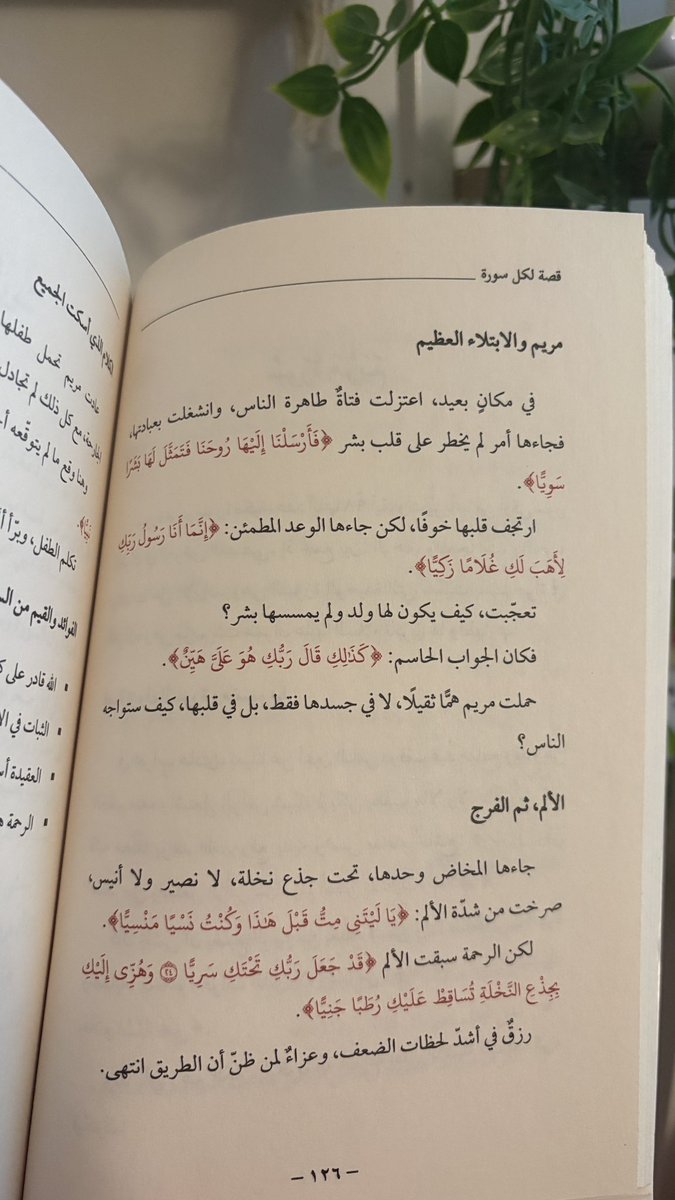 قصة لكل سورة
مريم والابتلاء العظيم
في مكانٍ بعيد، اعتزلت فتاةٌ طاهرة الناس، وانشغلت بعبادتها،
فجاءها أمر لم يخطر على قلب بشر ﴿فَأَرْسَلْنَا إِلَيْهَا رُوحَنَا فَتَمَثَّلَ لَهَا بَشَرًا
سَوِيًّا﴾.
ارتجف قلبها خوفًا، لكن جاءها الوعد المطمئن: ﴿إِنَّمَا أَنَا رَسُولُ رَبِّكِ
لِأَهَبَ لَكِ غُلَامًا زَكِيًّا﴾.
تعجّبت، كيف يكون لها ولد ولم يمسسها بشر؟
فكان الجواب الحاسم: ﴿كَذَلِكِ قَالَ رَبُّكِ هُوَ عَلَيَّ هَيِّنٌ﴾.
حملت مريم همًّا ثقيلًا، لا في جسدها فقط، بل في قلبها، كيف ستواجه
الناس؟
الألم، ثم الفرج
جاءها المخاض وحدها، تحت جذع نخلة، لا نصير ولا أنيس،
صرخت من شدّة الألم: ﴿يَا لَيْتَنِي مِتُّ قَبْلَ هَـٰذَا وَكُنْتُ نَسْيًا مَنْسِيًّا﴾.
لكن الرحمة سبقت الألم ﴿قَدْ جَعَلَ رَبُّكِ تَحْتَكِ سَرِيًّا ۝٢٤ وَهُزِّي إِلَيْكِ
بِجِذْعِ النَّخْلَةِ تُسَاقِطْ عَلَيْكِ رُطَبًا جَنِيًّا﴾.
رزقٌ في أشدّ لحظات الضعف، وعزاءٌ لمن ظنّ أن الطريق انتهى.
– ١٢٦ –
الكلام الذي أسكت الجميع
عادت مريم تحمل طفلها
مع كل ذلك لم تجادل
وهنا وقع ما لم يتوقّعه
تكلم الطفل، وبرّأ
الفوائد والقيم من
▪ الله قادر على
▪ الثبات في
▪ العقيدة
▪ الرحمة